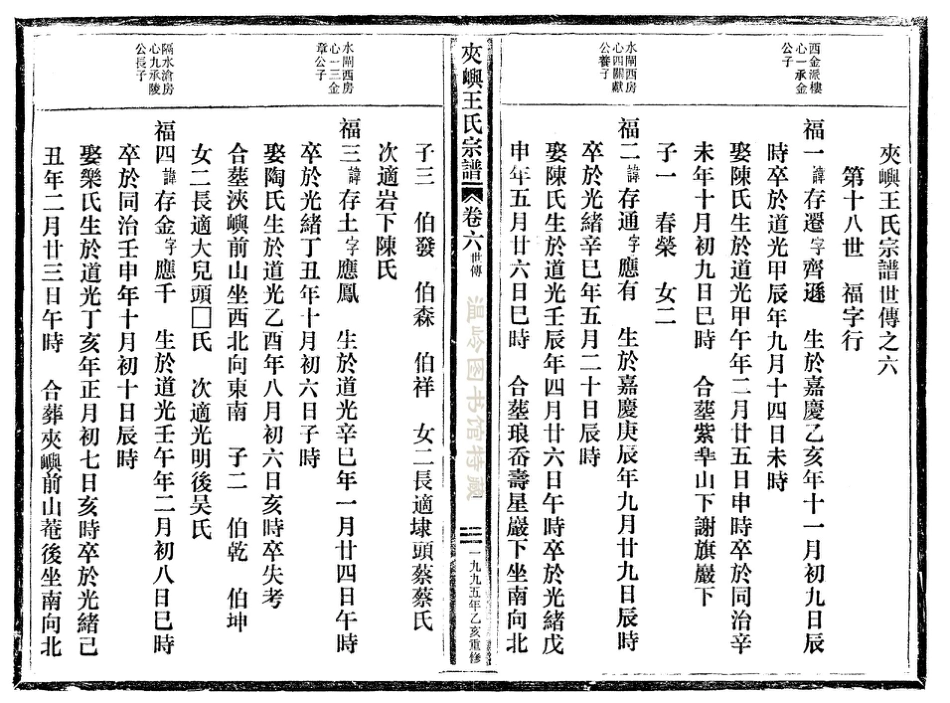 夾嶼王氏宗譜世傳之六
第十八世　福字行
西金派樓
心一承金
公子
福一諱存遷字齊遜　生於嘉慶乙亥年十一月初九日辰
時卒於道光甲辰年九月十四日未時
娶陳氏生於道光甲午年二月廿五日申時卒於同治辛
未年十月初九日巳時　合塟紫芈山下謝旗巖下
子一　春榮　女二
水閘西房
心四關獻
公養子
福二諱存通字應有　生於嘉慶庚辰年九月廿九日辰時
卒於光緒辛巳年五月二十日辰時
娶陳氏生於道光壬辰年四月廿六日午時卒於光緒戊
申年五月廿六日巳時　合塟琅岙壽星巖下坐南向北
夾嶼王氏宗譜
卷六世傳
温岭图书馆特藏
三
一九九五年乙亥重修
子三　伯發　伯森　伯祥　女二長適埭頭蔡蔡氏
次適岩下陳氏
水閘西房
心一三金
章公子
福三諱存土字應鳳　生於道光辛巳年一月廿四日午時
卒於光緒丁丑年十月初六日子時
娶陶氏生於道光乙酉年八月初六日亥時卒失考
合塟浹嶼前山坐西北向東南　子二　伯乾　伯坤
女二長適大兒頭□氏　次適光明後吴氏
隔水滄房
心九承陵
公長子
福四諱存金字應千　生於道光壬午年二月初八日巳時
卒於同治壬申年十月初十日辰時
娶樂氏生於道光丁亥年正月初七日亥時卒於光緒己
丑年二月廿三日午時　合葬夾嶼前山菴後坐南向北